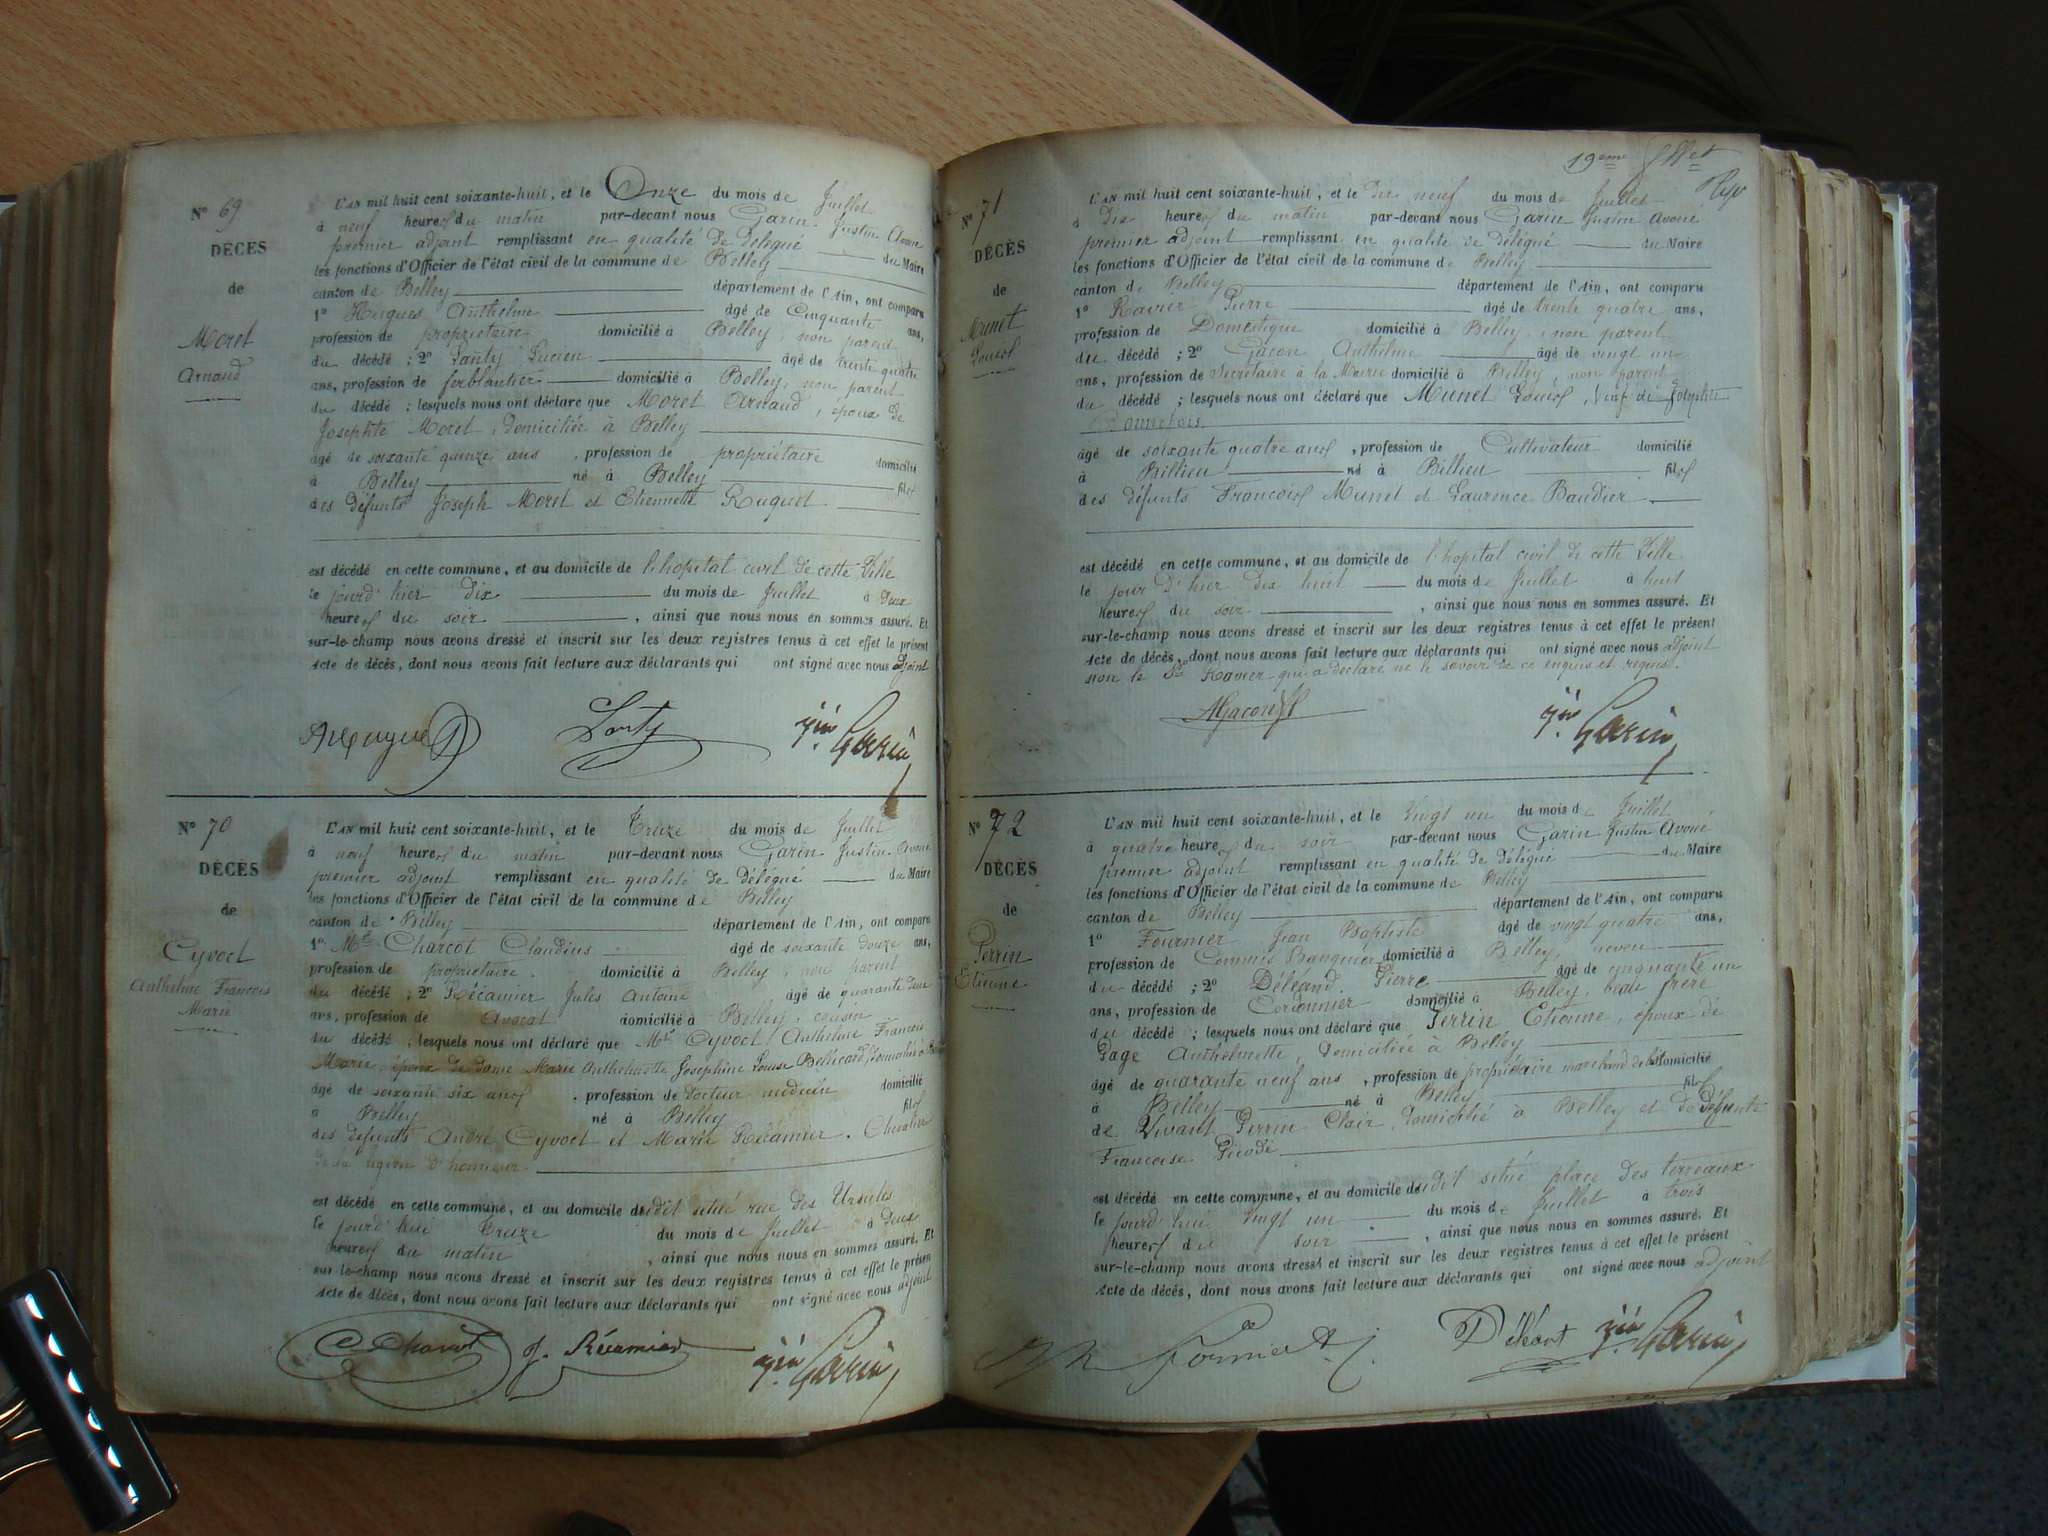 N° 69
DÉCÈS
de
Moret
Arnaud
L'AN mil huit cent soixante-huit, et le Onze du mois de Juillet
à neuf heures du matin par-devant nous Garin Justin Avoué
premier adjoint remplissant en qualité de délégué du Maire
les fonctions d'Officier de l'état civil de la commune de Belley
canton de Belley département de l'Ain, ont comparu
1° Hugues Anthelme âgé de Cinquante ans,
profession de propriétaire domicilié à Belley, non parent
du décédé ; 2° Lanty Lucien âgé de trente quatre
ans, profession de ferblantier domicilié à Belley, non parent
du décédé ; lesquels nous ont déclaré que Moret Arnaud, époux de
Josephte Moret, domiciliée à Belley
âgé de soixante quinze ans, profession de propriétaire domicilié
à Belley né à Belley fils
des défunts Joseph Moret et Etiennette Ruguet
est décédé en cette commune, et au domicile de l'hopital civil de cette Ville
le jourd'hier dix du mois de Juillet à deux
heures du soir, ainsi que nous nous en sommes assuré. Et
sur-le-champ nous avons dressé et inscrit sur les deux registres tenus à cet effet le présent
acte de décès, dont nous avons fait lecture aux déclarants qui ont signé avec nous adjoint
Lanty Jin Garin
N° 70
DÉCÈS
de
Cyvoct
Anthelme François
Marie
L'AN mil huit cent soixante-huit, et le Treize du mois de Juillet
à neuf heures du matin par-devant nous Garin Justin Avoué
premier adjoint remplissant en qualité de délégué du Maire
les fonctions d'Officier de l'état civil de la commune de Belley
canton de Belley département de l'Ain, ont comparu
1° Mr Charcot Claudius âgé de soixante douze ans,
profession de propriétaire domicilié à Belley, non parent
du décédé ; 2° Récamier Jules Antoine, âgé de quarante deux
ans, profession de Avocat domicilié à Belley, cousin
du décédé ; lesquels nous ont déclaré que Mr Cyvoct Anthelme François
Marie, époux de dame Marie Anthelmette Josephine Louise Bellicard, domiciliée à
âgé de soixante six ans, profession de docteur médecin domicilié
à Belley né à Belley fils
des défunts André Cyvoct et Marie Récamier. Chevalier
de la légion d'honneur
est décédé en cette commune, et au domicile dudit situé rue des Ursules
le jourd'hui treize du mois de Juillet à deux
heures du matin, ainsi que nous nous en sommes assuré. Et
sur-le-champ nous avons dressé et inscrit sur les deux registres tenus à cet effet le présen
acte de décès, dont nous avons fait lecture aux déclarants qui ont signé avec nous adjoint
C Charcot J. Récamier Jin Garin
19eme fllet
N° 71
DÉCÈS
de
Munet
Louis
L'AN mil huit cent soixante-huit, et le dix neuf du mois de Juillet
à dix heures du matin par-devant nous Garin Justin Avoué
premier adjoint remplissant en qualité de délégué du Maire
les fonctions d'Officier de l'état civil de la commune de Belley
canton de Belley département de l'Ain, ont comparu
1° Ravier Pierre âgé de trente quatre ans,
profession de Domestique domicilié à Belley, non parent
du décédé ; 2° Gacon Anthelme âgé de vingt un
ans, profession de Secrétaire à la Mairie domicilié à Belley, non parent
du décédé ; lesquels nous ont déclaré que Munet Louis, Veuf de Josephte
âgé de soixante quatre ans, profession de Cultivateur domicilié
à Billieu né à Billieu fils
des défunts François Munet et Laurence Baudier
est décédé en cette commune, et au domicile de l'hopital civil de cette Ville
le jour d'hier dix huit du mois de Juillet à huit
heures du soir, ainsi que nous nous en sommes assuré. Et
sur-le-champ nous avons dressé et inscrit sur les deux registres tenus à cet effet le présent
acte de décès, dont nous avons fait lecture aux déclarants qui ont signé avec nous adjoint
non le Sr Ravier qui a déclaré ne le savoir de ce enquis et requis.
AGacon Jin Garin
N° 72
DÉCÈS
de
Perrin
Etienne
L'AN mil huit cent soixante-huit, et le vingt un du mois de Juillet
à quatre heures du soir par-devant nous Garin Justin Avoué
premier adjoint remplissant en qualité de délégué du Maire
les fonctions d'Officier de l'état civil de la commune de Belley
canton de Belley département de l'Ain, ont comparu
1° Fournier Jean Baptiste âgé de vingt quatre ans,
profession de Commis Banquier domicilié à Belley, neveu
du décédé ; 2° Déléand Pierre âgé de cinquante un
ans, profession de Cordonnier domicilié à Belley, beau frère
du décédé ; lesquels nous ont déclaré que Perrin Etienne, époux de
Page Anthelmette, domiciliée à Belley
âgé de quarante neuf ans, profession de propriétaire marchand de domicilié
à Belley né à Belley fils
de Vivant Perrin Clair, domicilié à Belley et de défunte
Françoise Picodi
est décédé en cette commune, et au domicile dudit situé place des terreaux
le jourd'hui vingt un du mois de Juillet à trois
heures du soir, ainsi que nous nous en sommes assuré. Et
sur-le-champ nous avons dressé et inscrit sur les deux registres tenus à cet effet le présent
acte de décès, dont nous avons fait lecture aux déclarants qui ont signé avec nous adjoint
Déléant Jin Garin